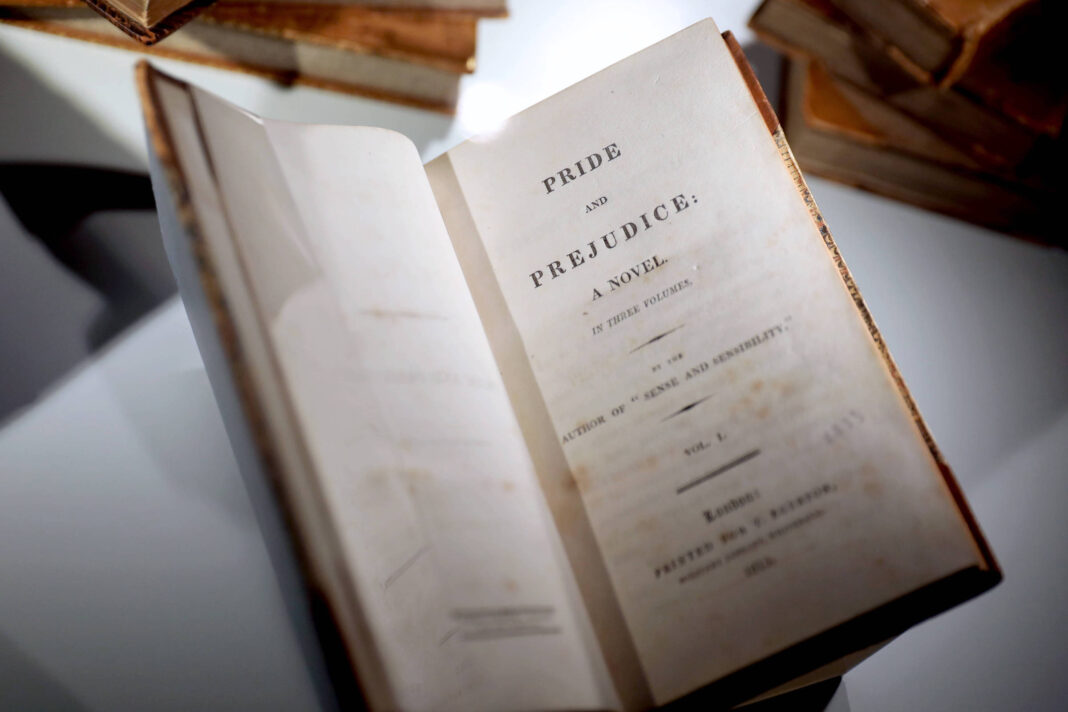 PRIDE
AND
PREJUDICE:
A NOVEL.
IN THREE VOLUMES.
BY THE
AUTHOR OF "SENSE AND SENSIBILITY."
VOL. I.
London:
PRINTED FOR T. EGERTON,
MILITARY LIBRARY, WHITEHALL.
1813.